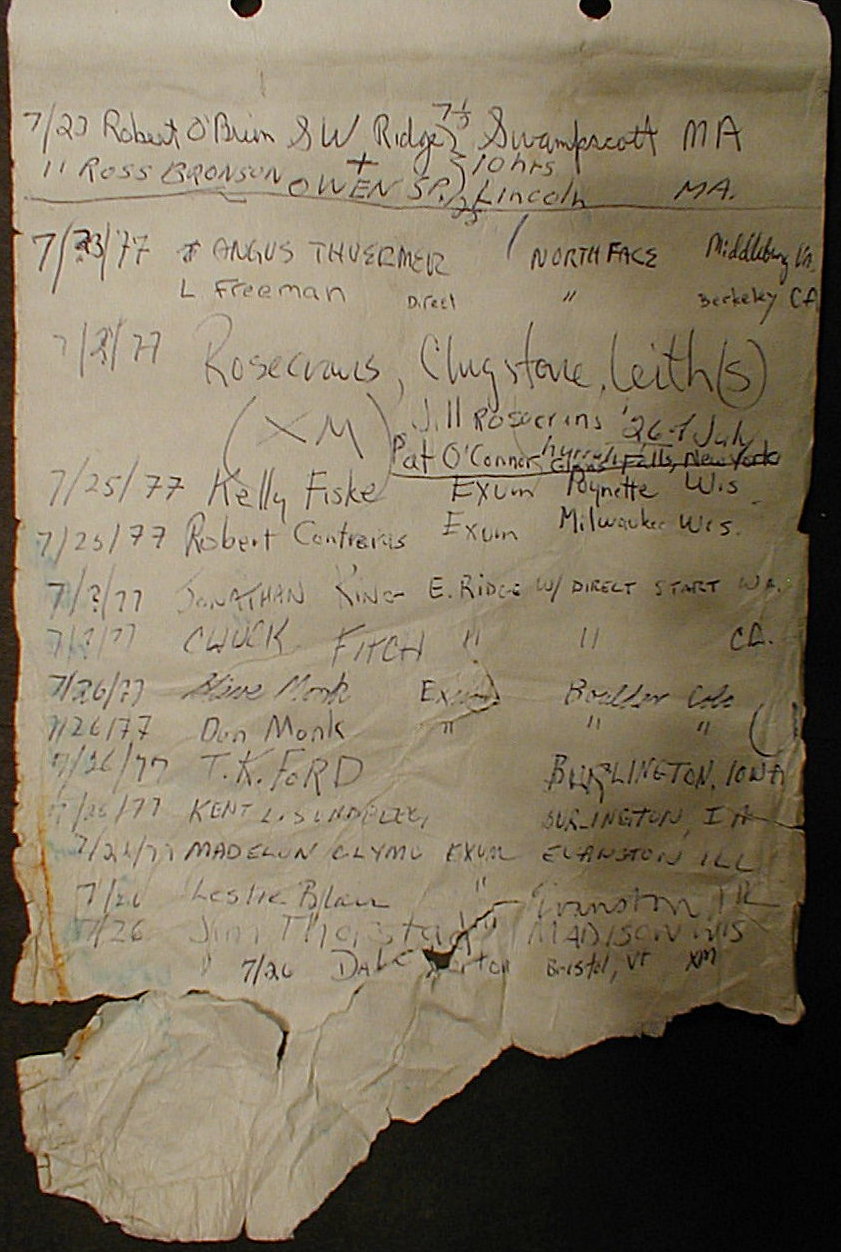 7/23 Robert O'Brien SW Ridge 7 1/2 Swampscott MA
11 ROSS BRONSON + OWEN SP. 10 hrs Lincoln MA.
7/23/77 ANGUS THUERMER NORTH FACE Middleburg Va.
L Freeman Direct " Berkeley CA
7/?/77 Rosecrans, Clugstone, Leith(s)
(XM) Jill Rosecrans '26 July
Pat O'Connor Glens Falls, New York
7/25/77 Kelly Fiske Exum Poynette Wis
7/25/77 Robert Contreras Exum Milwaukee Wis.
7/?/77 JONATHAN KING E. RIDGE W/ DIRECT START WA.
7/?/77 CHUCK FITCH " " CA.
7/26/77 Steve Monk Exum Boulder Colo
7/26/77 Don Monk " " "
7/26/77 T.K. FORD BURLINGTON, IOWA
7/26/77 KENT L. BURLINGTON, IA
7/26/77 MADELON EXUM EVANSTON ILL
7/26 Leslie Blau " Evanston, Ill
7/26 Jim Thorstad " MADISON WIS
" 7/26 DALE Bristol, VT XM